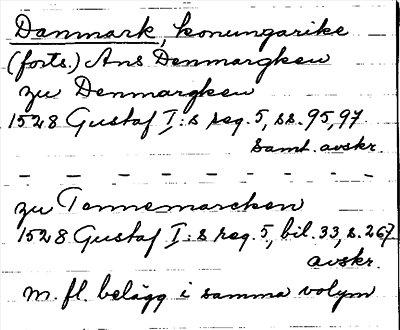 Danmark, konungarike
(forts.) Ans Denmargken
zu Denmargken
1528 Gustaf I:s reg. 5, ss. 95, 97.
Samt. avskr.
zu Tennemarcken
1528 Gustaf I:s reg. 5, bil. 33, s. 267
avskr.
M. fl. belägg i samma volym